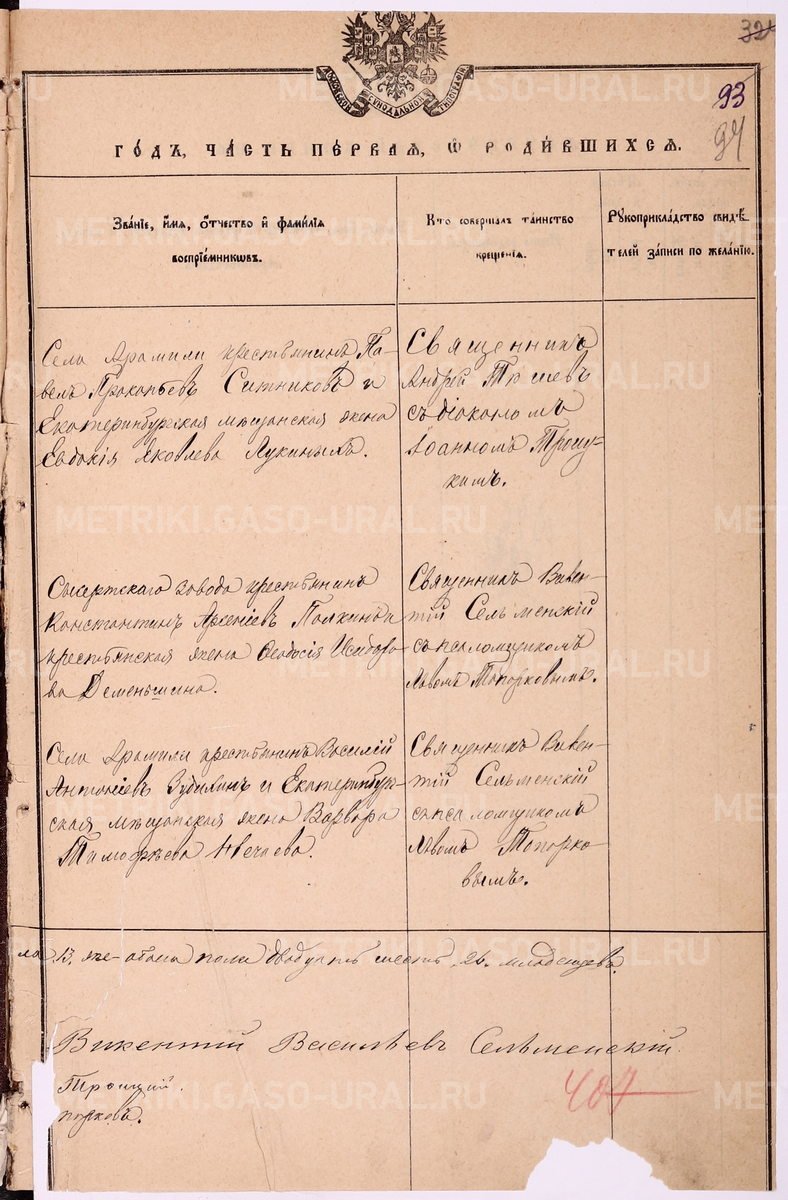 32
93
94
МОСКОВСКОЙ СѴНОДАЛЬНОЙ ТИПОГРАФІИ
ГОДЪ, ЧАСТЬ ПЕРВАЯ, Ѡ РОДИВШИХСЯ.
Званіе, имя, отчество и фамилія
воспріемниковъ.
Кто совершалъ таинство
крещенія.
Рукоприкладство свидѣ
телей записи по желанію.
Села Арамили крестьянинъ Па-
велъ Прокопьевъ Ситниковъ и
Екатеринбургская мѣщанская жена
Евдокія Яковлева Лукиныхъ.
Священникъ
Андрей
съ діакономъ
Іоанномъ Троиц-
кимъ.
Сысертскаго завода крестьянинъ
Константинъ Арсеніевъ и
крестьянская жена Ѳеодосія
ва Деменьшина.
Священникъ Викен-
тій Сельменскій
съ псаломщикомъ
Львомъ Топорковымъ.
Села Арамили крестьянинъ Василій
Антоніевъ Зубилинъ и Екатеринбург-
ская мѣщанская жена Варвара
Тимофѣева Нечаева.
Священникъ Викен-
тій Сельменскій
съ псаломщикомъ
Львомъ Топорко-
вымъ.
ла 13. обоего пола двадцать шесть 26. младенцевъ.
Викентій Васильевъ Сельменскій
Троицкій.
порковъ.
407
METRIKI.GASO-URAL.RU